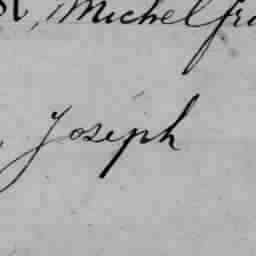 , Michel
, Joseph